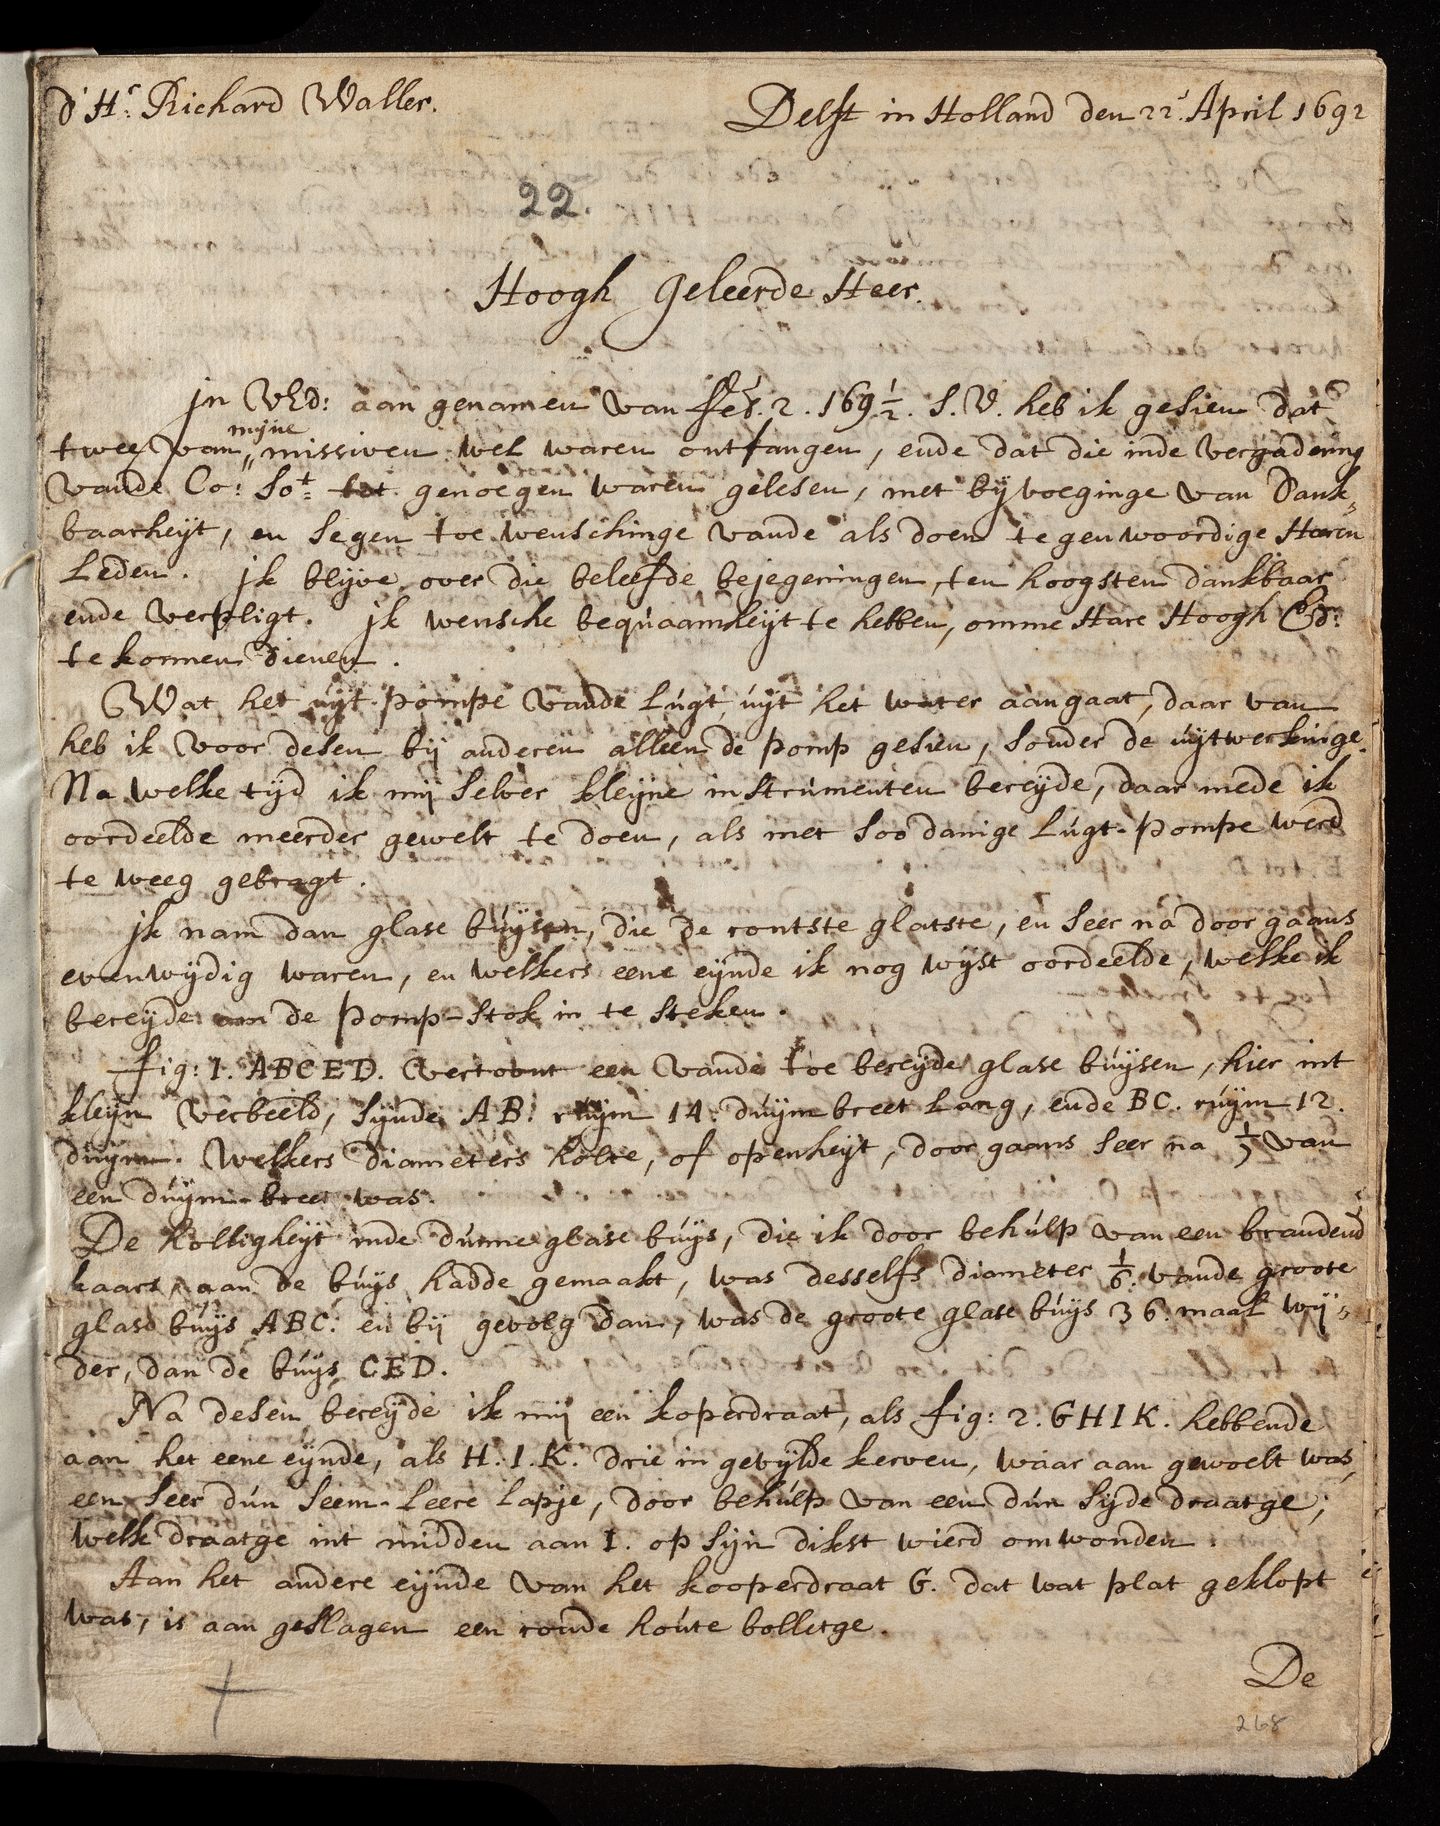 d'Hr: Richard Waller. Delft in Holland den 22e. April 1692
22.
Hoogh geleerde Heer.
Jn VEd: aan genamen van feb. 2. 169½. S.V. heb ik gesien dat
twee van mijne missiven wel waren ontfangen, ende dat die inde vergadering
vande Co: Sot= tot genoegen waren gelesen, met bij voeginge van Dank=
baarheijt, en segen toe wenschinge vande als doen tegenwoordige Haren
Leden. jk blijve over die beleefde bejegeringen, ten hoogsten dankbaar
ende verpligt. jk wensche bequaamheijt te hebben, omme Hare Hoogh Ed:
te konnen dienen.
Wat het uijt pompe vande Lugt, uijt het water aangaat, daar van
heb ik voor desen bij anderen alleen de pomp gesien, sonder de uijtwerkinge.
Na welke tijd ik mij selver kleijne instrumenten bereijde, daar mede ik
oordeelde meerder gewelt te doen, als met soo danige Lugt-pompe werd
te weeg gebragt.
jk nam dan glase buijsen, die de rontste glatste, en seer na door gaans
evenwijdig waren, en welkers eene eijnde ik nog wijst oordeelde, welke ik
bereijde om de pomp-stok in te steken.
fig: 1. ABCED. vertoont een vande toe bereijde glase buijsen, hier int
kleijn verbeeld, sijnde AB. ruijm 14. duijm breet Lang, ende BC. ruijm 12.
duijm. Welkers diameters holte, of openheijt, door gaans seer na ⅓ van
een duijm breet was.
De holligheijt inde dunne glase buijs, die ik door behulp van een brandend
kaars, aan de buijs hadde gemaakt, was desselfs diameter ⅙. vande groote
glase buijs ABC. en bij gevolg dan, was de groote glase buijs 36. maal wij=
der, dan de buijs CED.
Na desen bereijde ik mij een koperdraat, als fig: 2. GHIK. hebbende
aan het eene eijnde, als H.I.K. drie in gevijlde kerven, waar aan gewoelt was,
een seer dun seem-leere lapje, door behulp van een dun sijde draatge;
welk draatge int midden aan I. op sijn dikst wierd omwonden.
Aan het andere eijnde van het kooperdraat G. dat wat plat geklopt
was, is aan geslagen een ronde houte bolletge.
De
268